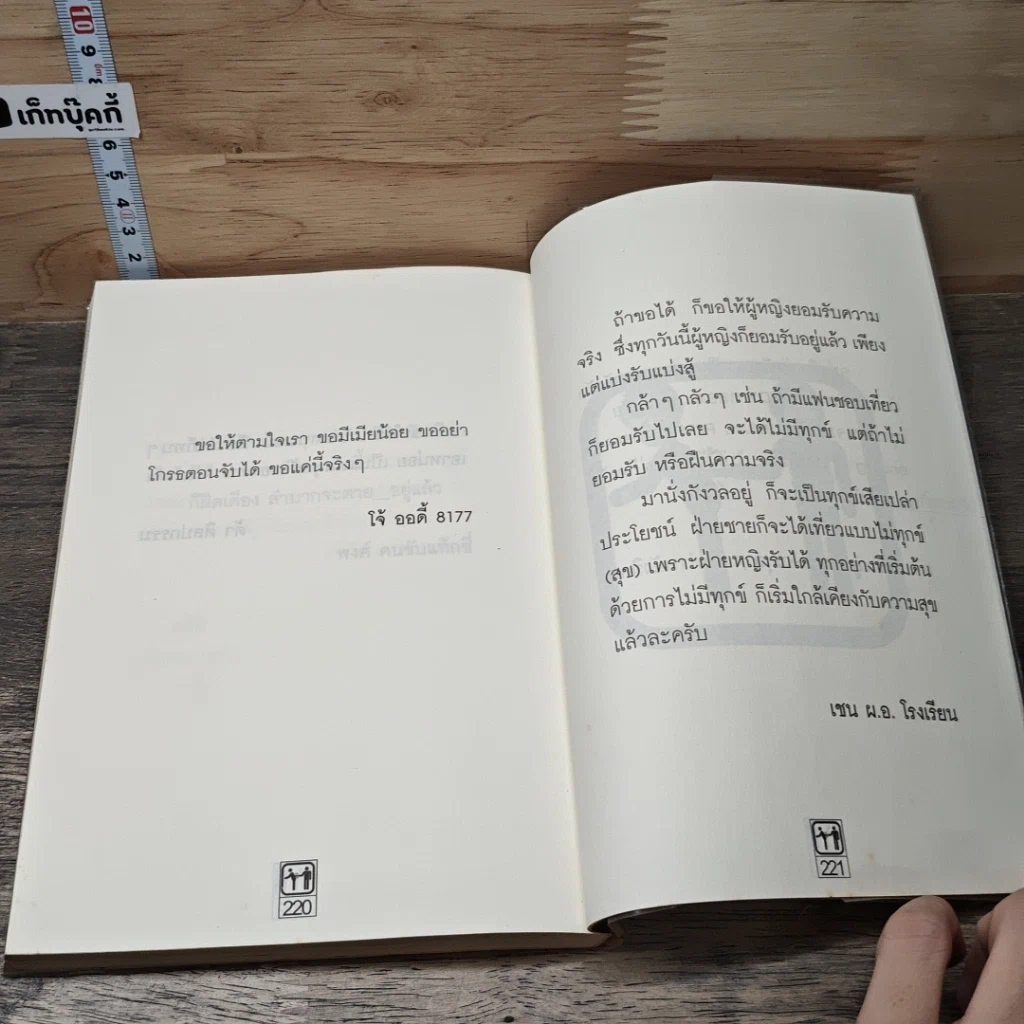 10
9
เก็ทบุ๊คกี้
6
5
4
3
2
ขอให้ตามใจเรา ขอมีเมียน้อย ขออย่า
โกรธตอนจับได้ ขอแค่นี้จริงๆ
โจ้ ออดี้ 8177
220
ถ้าขอได้ ก็ขอให้ผู้หญิงยอมรับความ
จริง ซึ่งทุกวันนี้ผู้หญิงก็ยอมรับอยู่แล้ว เพียง
แต่แบ่งรับแบ่งสู้
กล้าๆ กลัวๆ เช่น ถ้ามีแฟนชอบเที่ยว
ก็ยอมรับไปเลย จะได้ไม่มีทุกข์ แต่ถ้าไม่
ยอมรับ หรือฝืนความจริง
มานั่งกังวลอยู่ ก็จะเป็นทุกข์เสียเปล่า
ประโยชน์ ฝ่ายชายก็จะได้เที่ยวแบบไม่ทุกข์
(สุข) เพราะฝ่ายหญิงรับได้ ทุกอย่างที่เริ่มต้น
ด้วยการไม่มีทุกข์ ก็เริ่มใกล้เคียงกับความสุข
แล้วละครับ
เชน ผ.อ. โรงเรียน
221